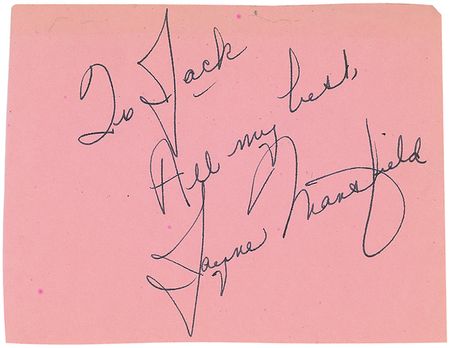 To Jack
All my best,
Jayne Mansfield